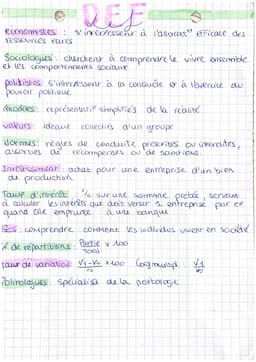 DEF
économistes : s'intéressent à l'allocat° efficace des
ressources rares
Sociologues : cherchent à comprendre le vivre ensemble
et les comportements sociaux
politistes s'intéressent à la conquête et à l'exercice du
pouvoir politique
modèles : représentatif simplifiés de la réalité
valeurs : idéaux collectifs d'un groupe
Normes : règles de conduite prescrites ou interdites,
assorties de récompenses ou de sanctions.
Investissement : achat pour une entreprise d'un bien
de production.
Taux d'intérêt : % sur une somme prêtée, servant
à calculer les intérêts que doit verser 1 entreprise par ex
quand elle emprunte à une banque
Ses : comprendre comment les individus vivent en société
% de répartitions : Partie / Total x 100
taux de variation V1-V0 / V0 x 100 Coef mulitipl. : V1 / V0
Politologues : spécialisé de la